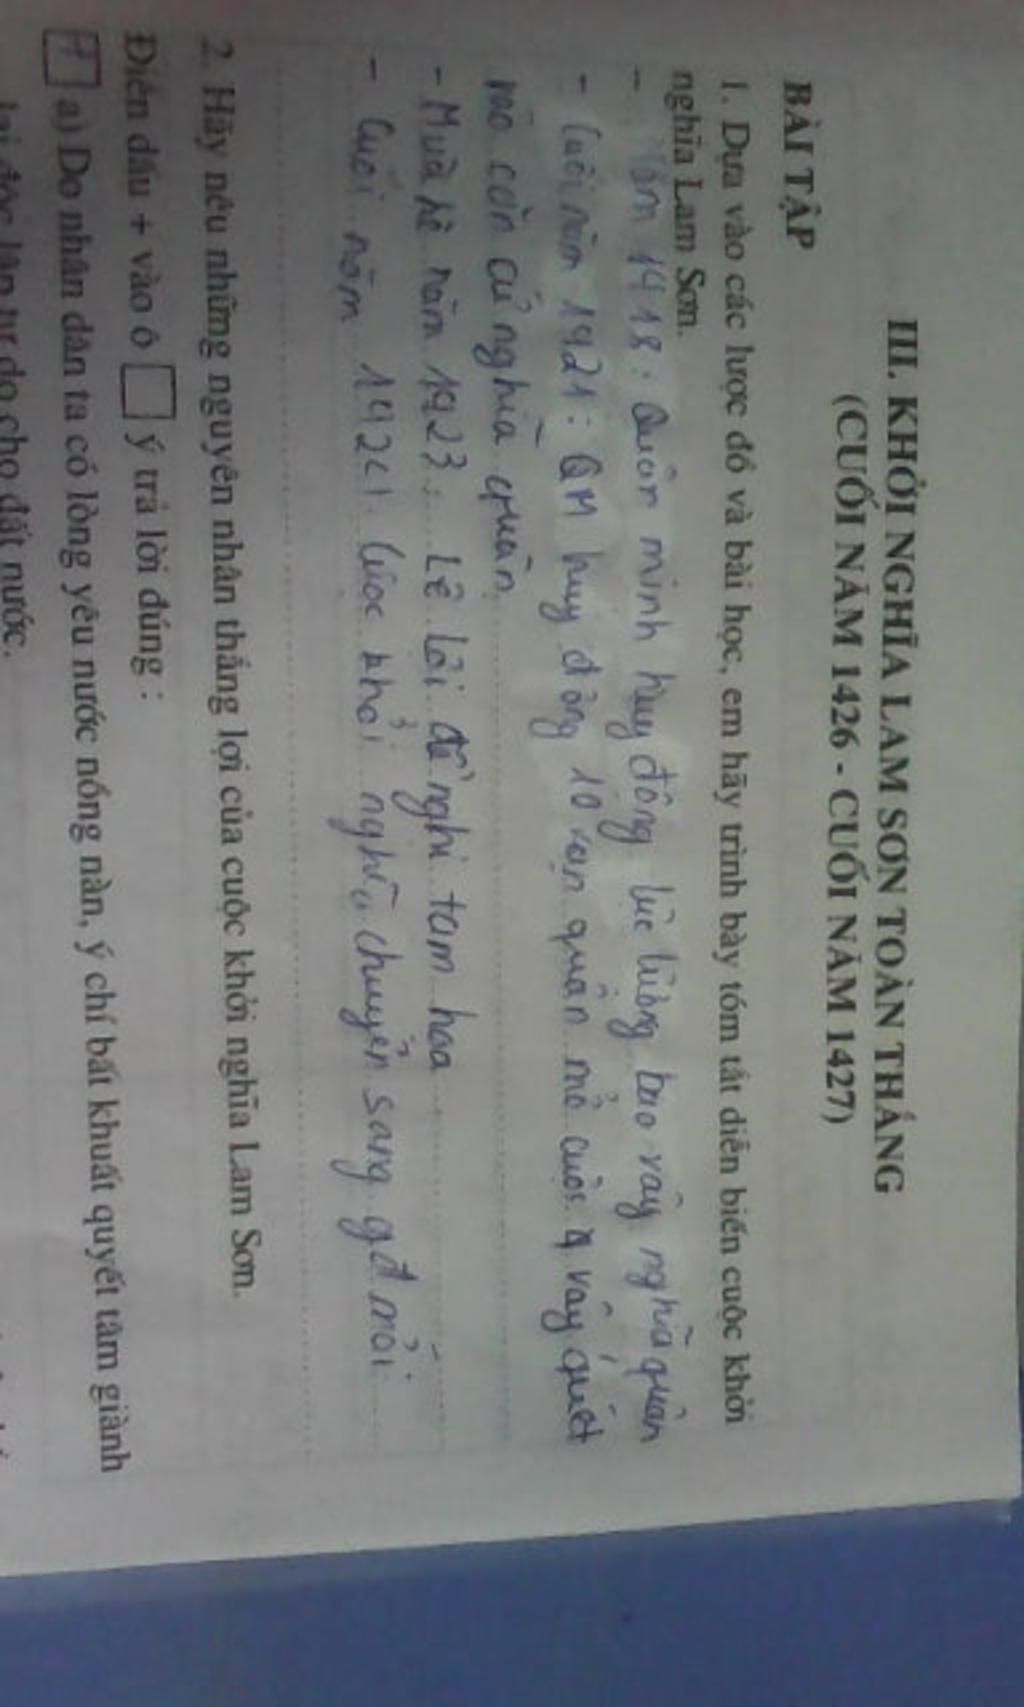 III. KHỞI NGHĨA LAM SƠN TOÀN THẮNG
(CUỐI NĂM 1426 - CUỐI NĂM 1427)
BÀI TẬP
1. Dựa vào các lược đồ và bài học, em hãy trình bày tóm tắt diễn biến cuộc khởi
nghĩa Lam Sơn.
- Năm 1418: Quân minh huy động lực lượng bao vây nghĩa quân
- Cuối năm 1421: QM huy động 10 vạn quân mở cuộc vây quét
vào căn cứ nghĩa quân
- Mùa hè năm 1423: Lê Lợi đề nghị tạm hòa
- Cuối năm 1424 cuộc khởi nghĩa chuyển sang gđ mới
2. Hãy nêu những nguyên nhân thắng lợi của cuộc khởi nghĩa Lam Sơn.
Điền dấu + vào ô ý trả lời đúng :
+ a) Do nhân dân ta có lòng yêu nước nồng nàn, ý chí bất khuất quyết tâm giành
lại độc lập tự do cho đất nước.